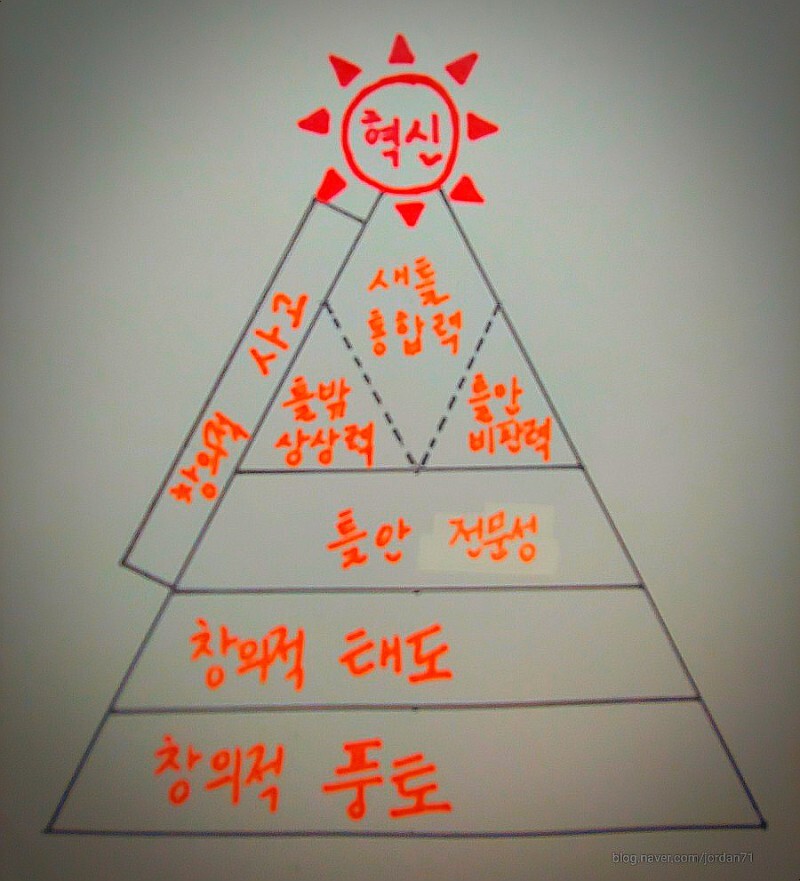 혁신
새틀
통합력
틀밖
상상력
틀안
비판력
창의적 사고
틀안 전문성
창의적 태도
창의적 풍토
blog.naver.com/jordan71